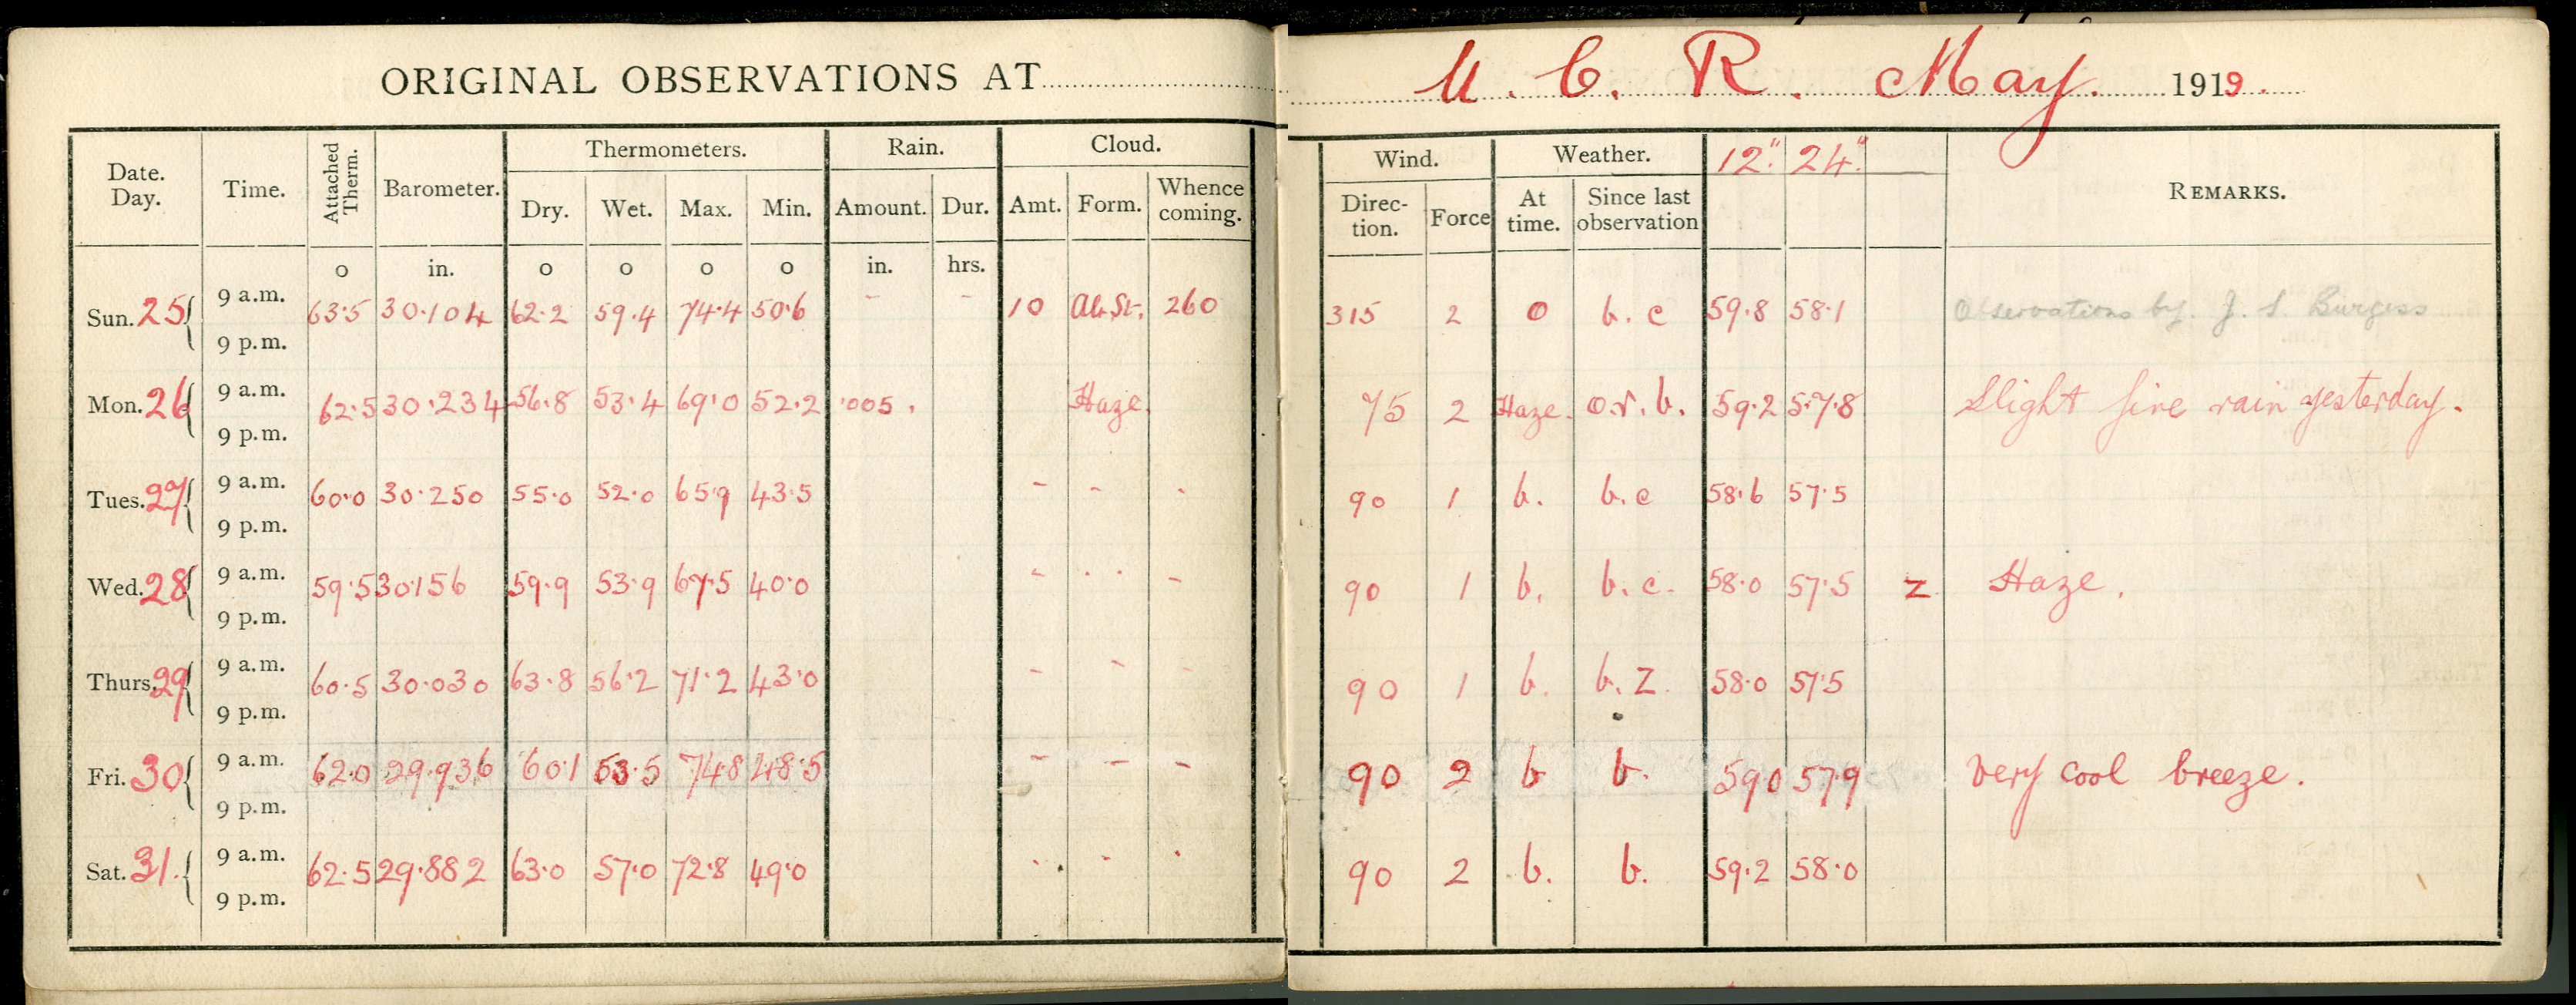 ORIGINAL OBSERVATIONS AT U. C. R. May. 1919.
Date. Day. Time. Attached Therm. Barometer. Thermometers. Rain. Cloud. Wind. Weather. 12". 24". REMARKS.
Dry. Wet. Max. Min. Amount. Dur. Amt. Form. Whence coming. Direc-tion. Force At time. Since last observation
o in. o o o o in. hrs.
Sun. 25 9 a.m. 63.5 30.104 62.2 59.4 74.4 50.6 - - 10 Al.St. 260 315 2 o b.c 59.8 58.1 Observations by. J. S. Burgess
9 p.m.
Mon. 26 9 a.m. 62.5 30.234 56.8 53.4 69.0 52.2 .005. Haze. 75 2 Haze. o.r.b. 59.2 57.8 Slight fine rain yesterday.
9 p.m.
Tues. 27 9 a.m. 60.0 30.250 55.0 52.0 65.9 43.5 - - - 90 1 b. b.c 58.6 57.5
9 p.m.
Wed. 28 9 a.m. 59.5 30156 59.9 53.9 67.5 40.0 - - - 90 1 b. b.c. 58.0 57.5 z Haze.
9 p.m.
Thurs. 29 9 a.m. 60.5 30.030 63.8 56.2 71.2 43.0 - - - 90 1 b. b.z. 58.0 57.5
9 p.m.
Fri. 30 9 a.m. 62.0 29.936 60.1 53.5 74.8 48.5 - - - 90 2 b b. 59.0 57.9 Very cool breeze.
9 p.m.
Sat. 31. 9 a.m. 62.5 29.882 63.0 57.0 72.8 49.0 - - - 90 2 b. b. 59.2 58.0
9 p.m.